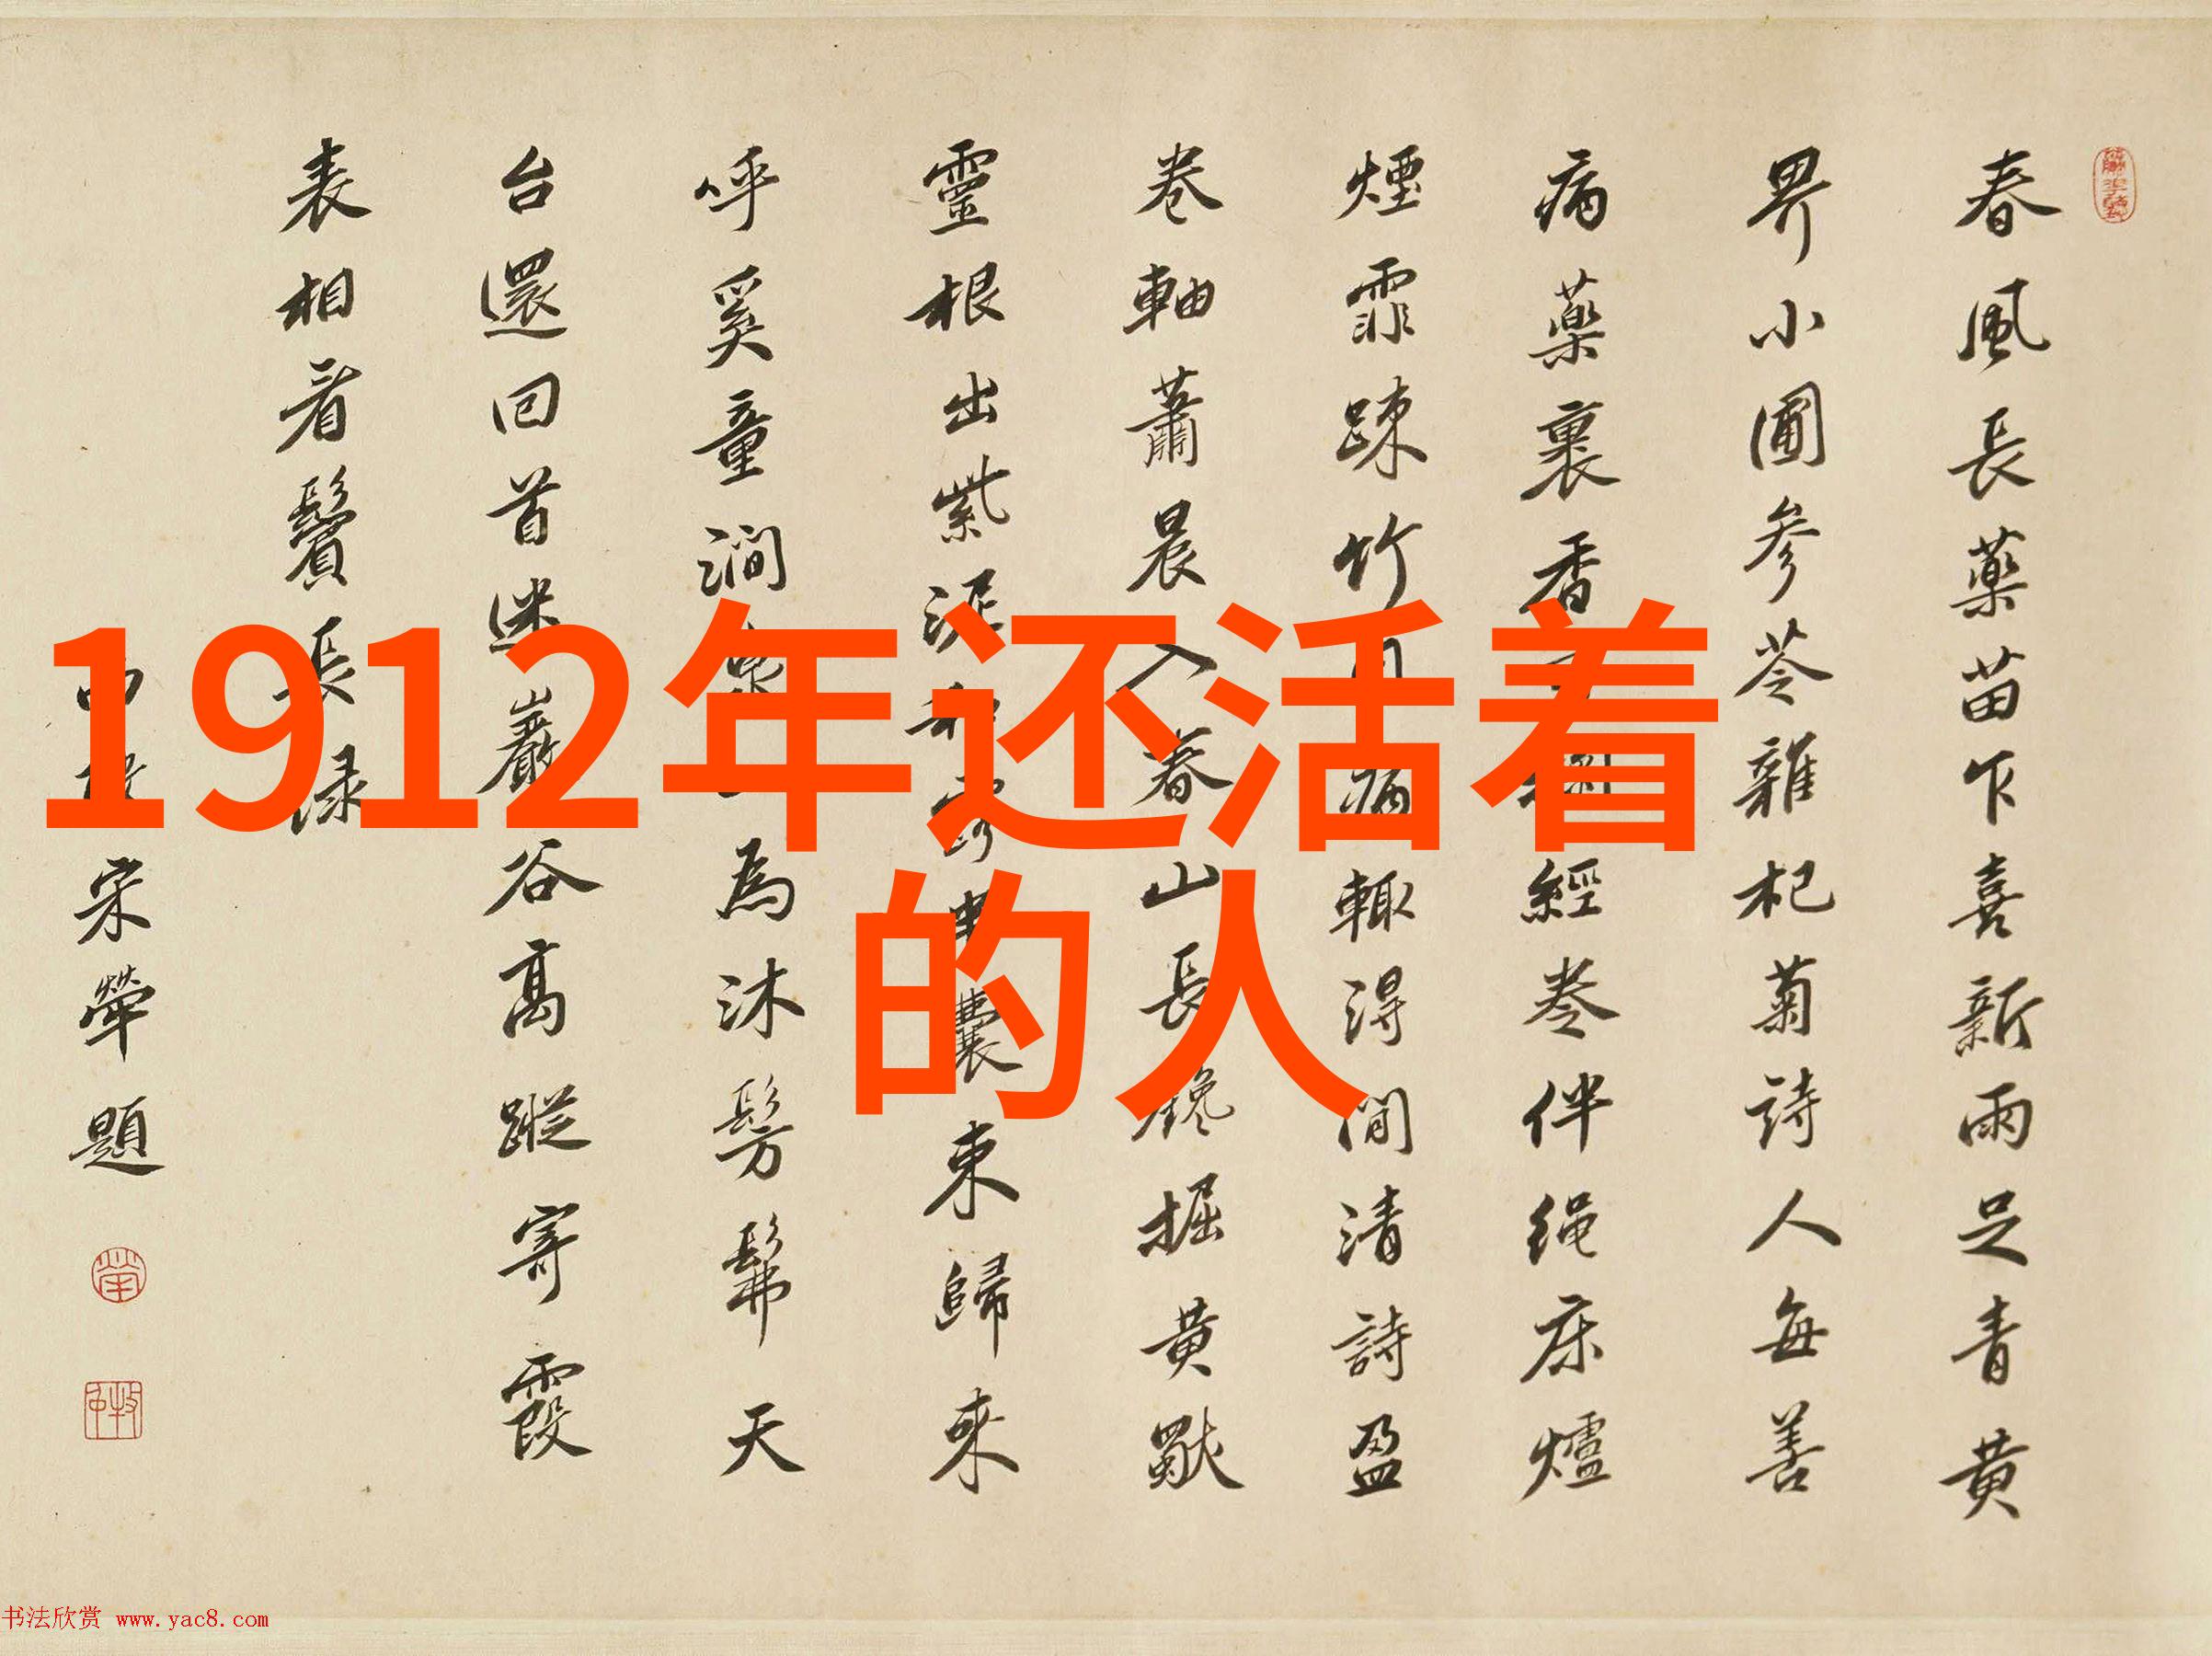 1912年还活着
的人
春風長藥苗乍喜新雨足青黃
界小圃參苓雜杞菊詩人每善
病藥裹香經卷伴繩床爐
煙霏疎竹病輒得閒清詩盈
卷軸蕭晨入春山長鑱掘黃獨
靈根出紫泥囊束歸來
呼奚童澗為沐髣髴天
台還回首迷巖谷高蹤寄霞
表相看鬢長綠
宋犖題
书法欣赏 www.yac8.com